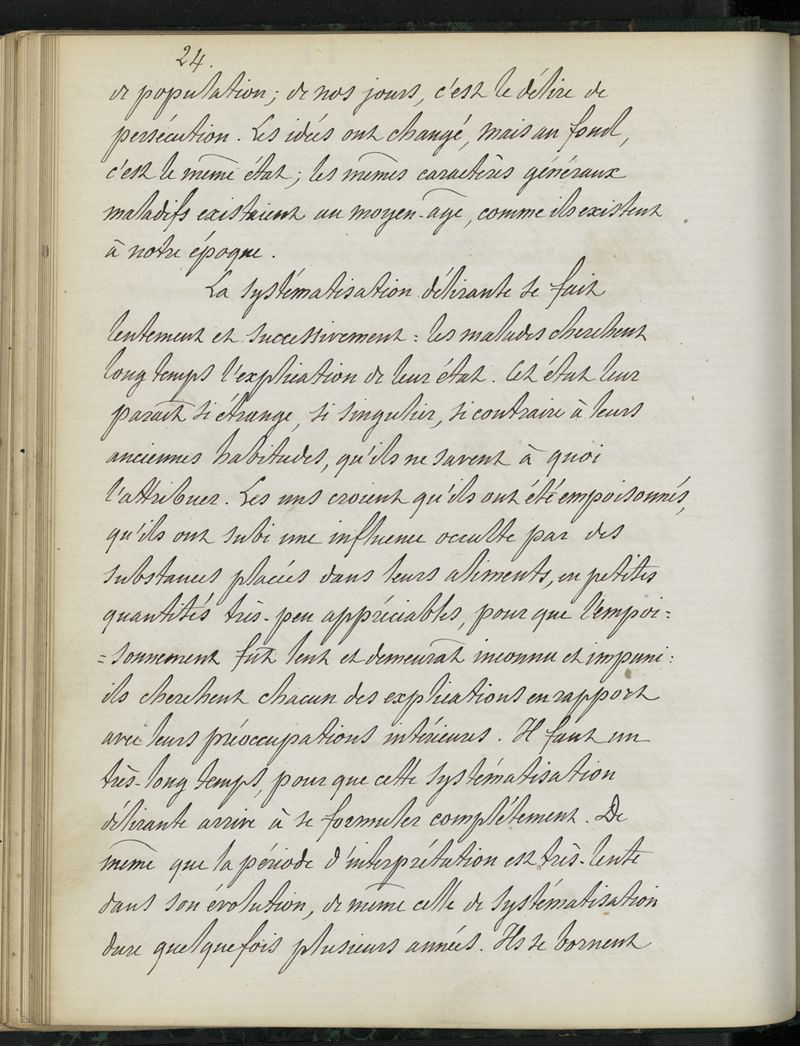 24.
de population ; de nos jours, c'est le délire de
persécution. Les idées ont changé, mais au fond,
c'est le même état ; les mêmes caractères généraux
maladifs existaient au moyen-âge, comme ils existent
à notre époque.
La systématisation délirante se fait
lentement et successivement : les malades cherchent
longtemps l'explication de leur état. Cet état leur
paraît si étrange, si singulier, si contraire à leurs
anciennes habitudes, qu'ils ne savent à quoi
l'attribuer. Les uns croient qu'ils ont été empoisonnés,
qu'ils ont subi une influence occulte par des
substances placées dans leurs aliments, en petites
quantités très-peu appréciables, pour que l'empoi=
=sonnement fût lent et demeurât inconnu et impuni :
ils cherchent chacun des explications en rapport
avec leurs préoccupations intérieures. Il faut un
très-long temps, pour que cette systématisation
délirante arrive à se formuler complétement. De
même que la période d'interprétation est très-lente
dans son évolution, de même celle de systématisation
dure quelquefois plusieurs années. Ils se bornent